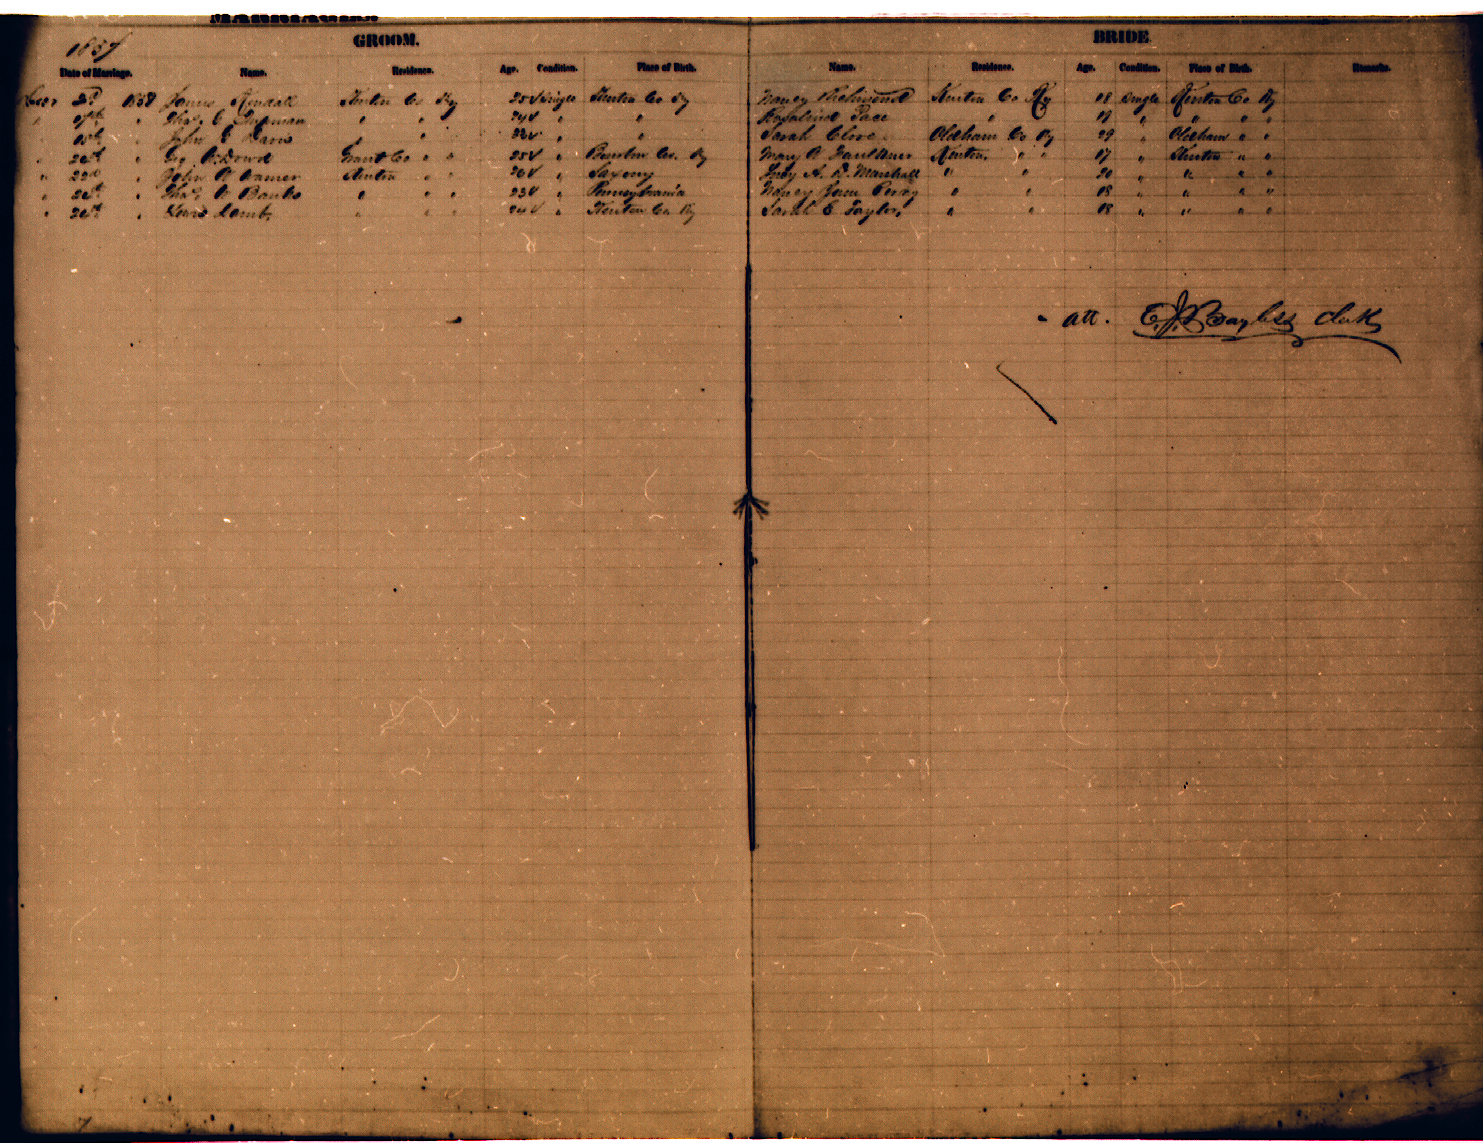 MARRIAGES.
1857
GROOM. BRIDE
Date of Marriage. Name. Residence. Age. Condition. Place of Birth. Name. Residence. Age. Condition. Place of Birth. Remarks.
2d 1858 James Kendall Kenton Co Ky 25 Single Kenton Co Ky Nancy Richmond Kenton Co Ky 18 Single Kenton Co Ky
" 17th " Thos. C " " " 24 " " Pace " 19 " " " "
" 18th " John E Davis " " " " Sarah Clore Oldham Co Ky 29 " Oldham " "
" 20th " Geo. Grant Co " " 25 " Bourbon Co. Ky Mary A Faulkner Kenton, " " 17 " Kenton " "
" 22d " John Kenton " " 26 " Saxony A. D. Marshall " " " 20 " " " "
" " Thos. Banks " " " 23 " Pennsylvania Nancy Jane Perry " " " 18 " " " "
" 26th " Lewis Lamb, " " " 24 " Kenton Co. Ky Sarah E Taylor, " " " 18 " " " "
att. E. J. Bayless Clerk